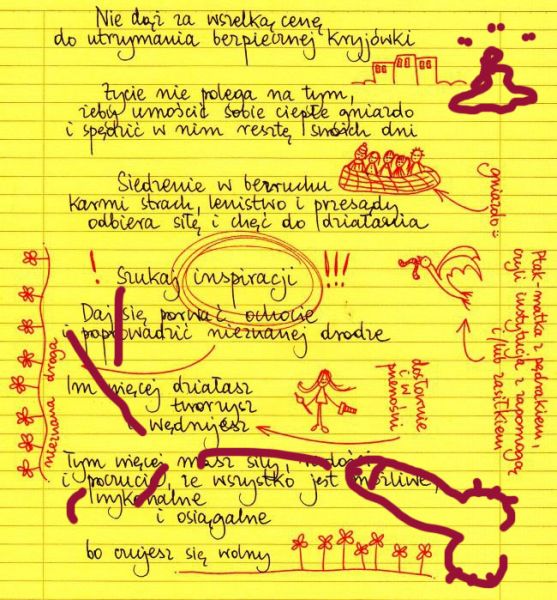 Nie dąż za wszelką cenę
do utrzymania bezpiecznej kryjówki
Życie nie polega na tym,
żeby umościć sobie ciepłe gniazdo
i spędzić w nim resztę swoich dni
gniazdo
Siedzenie w bezruchu
karmi strach, lenistwo i przesądy
odbiera siłę i chęć do działania
Ptak-matka z pędrakiem,
czyli instytucja z zapomogą
i/lub zasiłkiem
! Szukaj inspiracji !!!
Daj się porwać ochocie
i poprowadzić nieznanej drodze
nieznana droga
Im więcej działasz
tworzysz
i wędrujesz
dosłownie
i w
przenośni
Tym więcej masz siły, radości
i poczucia, że wszystko jest możliwe,
wykonalne
i osiągalne
bo czujesz się wolny